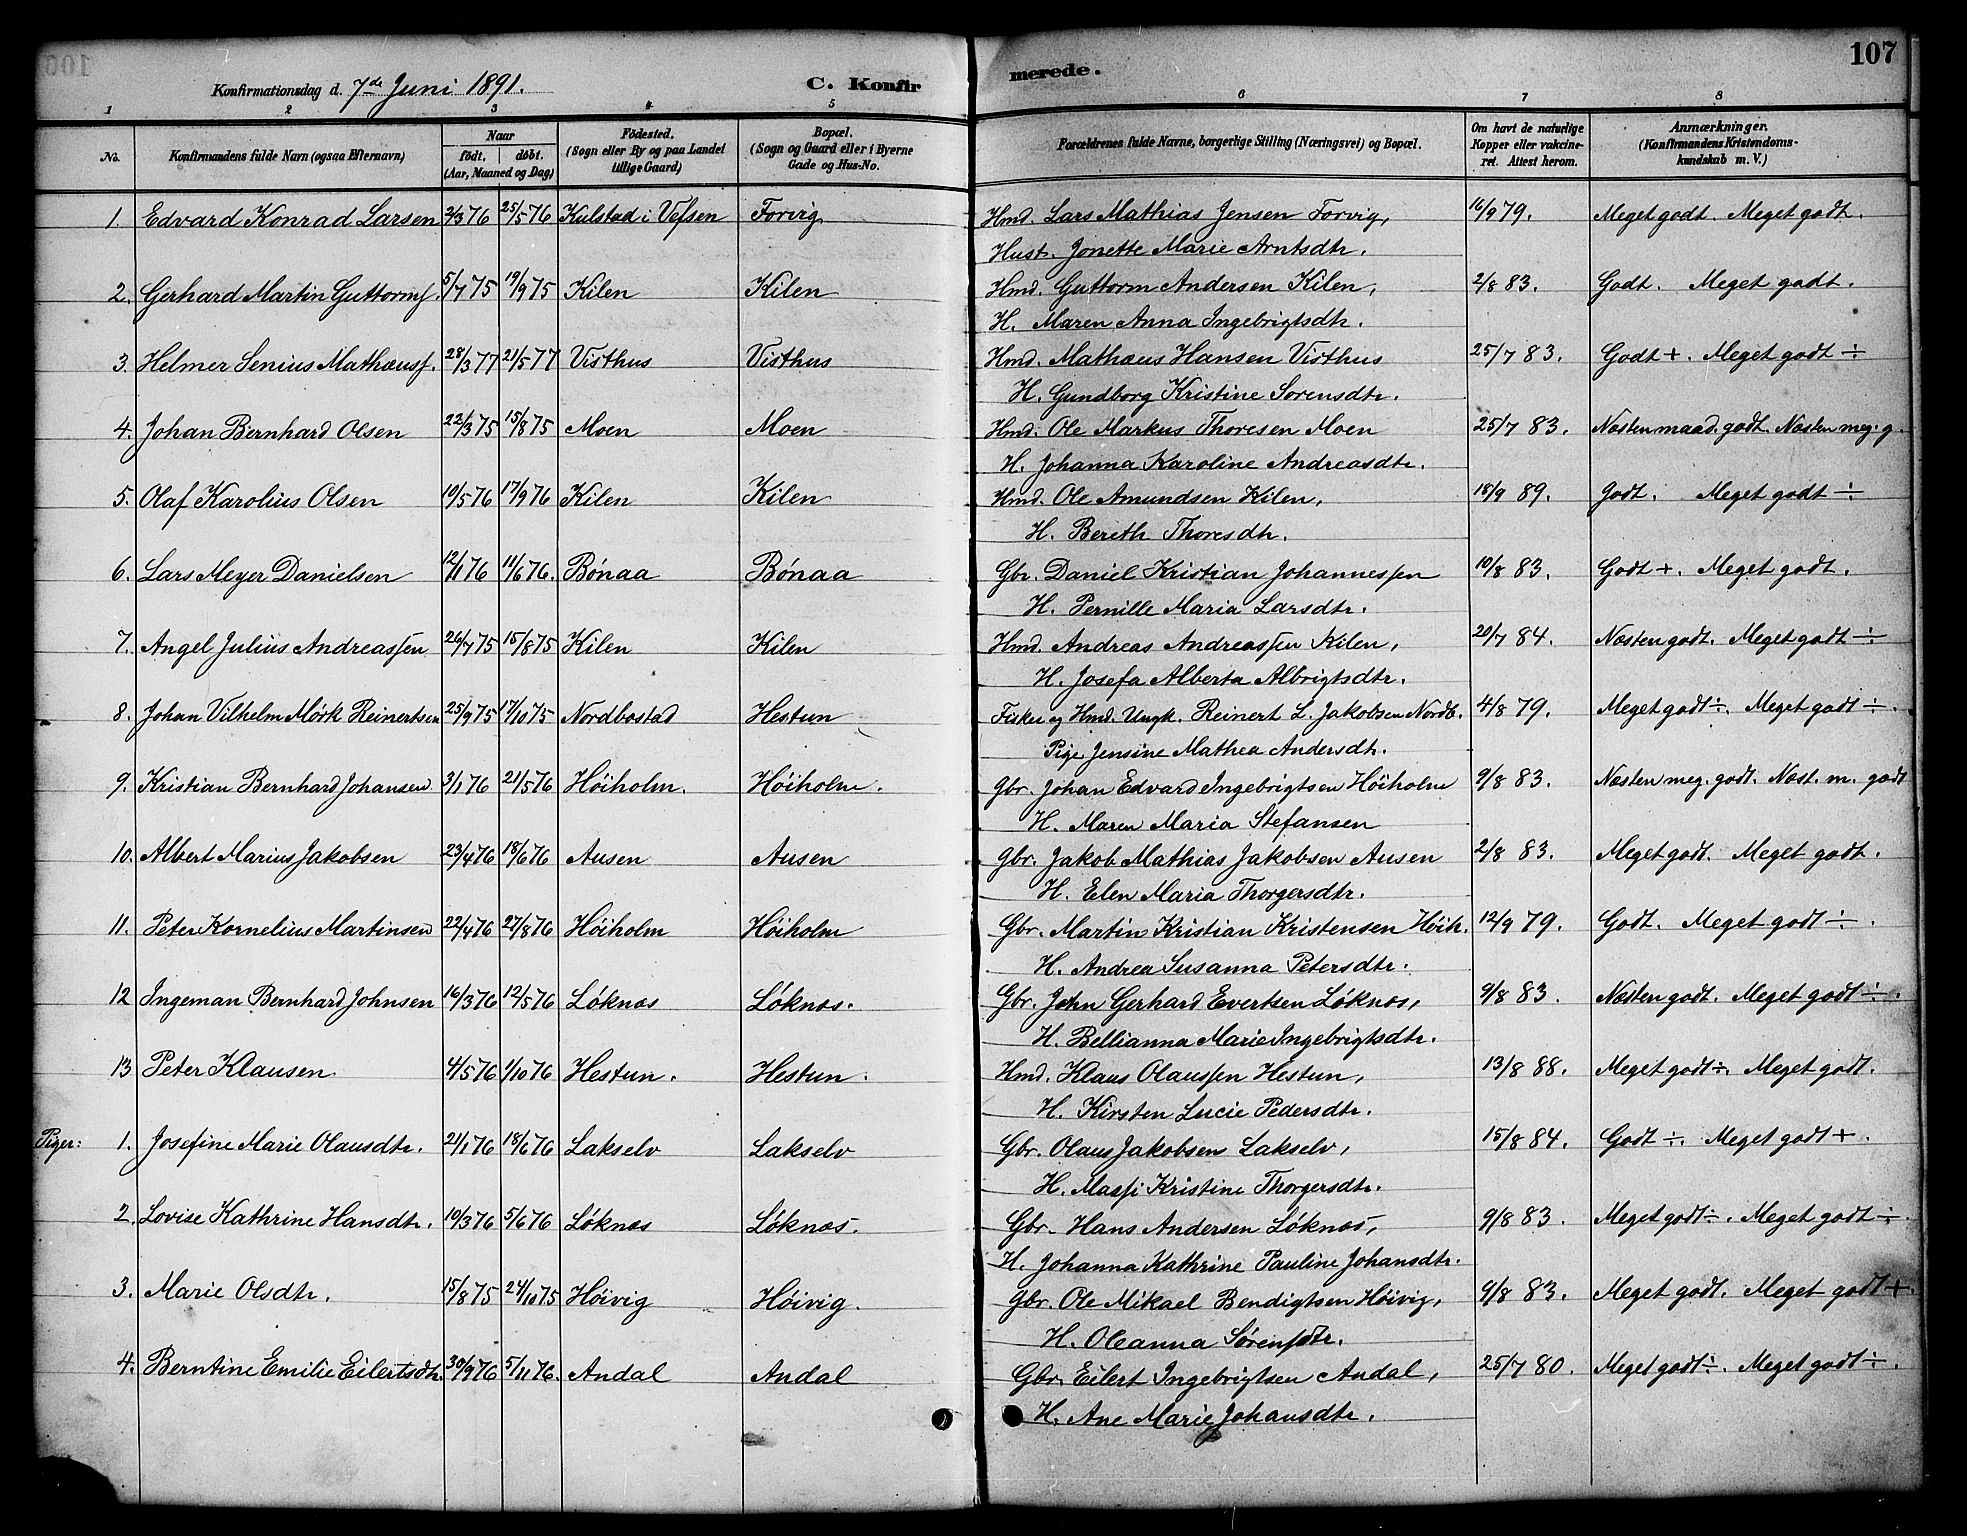 107
Konfirmationsdag d. 7de Juni 1891. C. Konfirmerede.
1 2 3 4 5 6 7 8
No. Konfirmandens fulde Navn (ogsaa Efternavn) Naar født, døbt. (Aar, Maaned og Dag) Fødested. (Sogn eller By og paa Landet tillige Gaard) Bopæl. (Sogn og Gaard eller i Byerne Gade og Hus-No. Forældrenes fulde Navne, borgerlige Stilling (Næringsvei) og Bopæl. Om havt de naturlige Kopper eller vakcineret. Attest herom. Anmærkninger. (Konfirmandens Kristendomskundskab m. V.)
1. Edvard Konrad Larsen 2/3 76 25/5 76 Kulstad i Vefsen Forvig Hmd. Lars Mathias Jensen Forvig, 16/9 79. Meget godt. Meget godt.
Hust. Jonette Marie Arntsdtr.
2. Gerhard Martin Guttorms. 5/7 75 19/9 75 Kilen Kilen Hmd. Guttorm Andersen Kilen, 2/8 83. Godt. Meget godt.
H. Maren Anna Ingebrigtsdtr.
3. Helmer Senius Mathæuss. 28/3 77 21/5 77 Visthus Visthus Hmd. Mathæus Hansen Visthus 25/7 83. Godt +. Meget godt ÷
H. Gundborg Kristine Sorensdtr.
4. Johan Bernhard Olsen 22/3 75 15/8 75 Moen Moen Hmd. Ole Markus Thoresen Moen 25/7 83. Næsten maad. godt. Næsten meg. g.
H. Johanna Karoline Andreasdtr.
5. Olaf Karolius Olsen 10/5 76 17/9 76 Kilen Kilen Hmd. Ole Amundsen Kilen, 18/9 89. Godt. Meget godt ÷
H. Bereth Thoresdtr.
6. Lars Meyer Danielsen 12/1 76 11/6 76. Bónaa Bónaa Gbr. Daniel Kristian Johannessen 10/8 83. Godt +. Meget godt.
H. Pernille Maria Larsdtr.
7. Angel Julius Andreassen 26/7 75 15/8 75 Kilen Kilen Hmd. Andreas Andreassen Kilen, 20/7 84. Næsten godt. Meget godt ÷
H. Josefa Alberta Albrigtsdtr.
8. Johan Vilhelm Mørk Reinertsen 25/9 75 17/10 75 Nordbostad Hestun Fisker og Hmd. Ungk. Reinert L. Jakobsen Nordb. 4/8 79. Meget godt ÷. Meget godt ÷.
Pige Jensine Mathea Andersdtr.
9. Kristian Bernhard Johansen 3/1 76 21/5 76 Høiholm. Høiholm. Gbr. Johan Edvard Ingebrigtsen Høiholm 9/8 83. Næsten meg. godt. Næst. m. godt
H. Maren Maria Stefansen
10. Albert Marius Jakobsen 23/4 76 18/6 76 Ausen Ausen Gbr. Jakob Mathias Jakobsen Ausen 2/8 83. Meget godt. Meget godt.
H. Elen Maria Thorgersdtr.
11. Peter Kornelius Martinsen 22/4 76 27/8 76 Høiholm Høiholm Gbr. Martin Kristian Kristensen Høih. 12/9 79. Godt. Meget godt ÷.
H. Andrea Susanna Petersdtr.
12 Ingeman Bernhard Johnsen 16/3 76 12/5 76 Løknæs Løknæs. Gbr. John Gerhard Evertsen Løknæs, 9/8 83. Næsten godt. Meget godt ÷.
H. Bellianna Marie Ingebrigtsdtr.
13 Peter Klausen 4/5 76 1/10 76 Hestun. Hestun. Hmd. Klaus Olaussen Hestun, 13/8 88. Meget godt ÷. Meget godt.
H. Kirsten Lucie Pedersdtr.
Piger: 1. Josefine Marie Olausdtr. 21/1 76 18/6 76 Lakselv Lakselv Gbr. Olaus Jakobsen Lakselv, 15/8 84. Godt ÷. Meget godt +.
H. Massi Kristine Thorgersdtr.
2. Lovise Kathrine Hansdtr. 10/3 76 5/6 76 Løknæs Løknæs. Gbr. Hans Andersen Løknæs, 9/8 83. Meget godt ÷. Meget godt ÷.
H. Johanna Kathrine Pauline Johansdtr.
3. Marie Olsdtr. 15/8 75 24/10 75 Høivig Høivig. Gbr. Ole Mikael Bendigtsen Høivig, 9/8 83. Meget godt. Meget godt +.
H. Oleanna Sørensdtr.
4. Berntine Emilie Eilertsdtr. 30/9 76 5/11 76. Andal Andal Gbr. Eilert Ingebrigtsen Andal, 25/7 80. Meget godt ÷. Meget godt ÷.
H. Ane Marie Johansdtr.